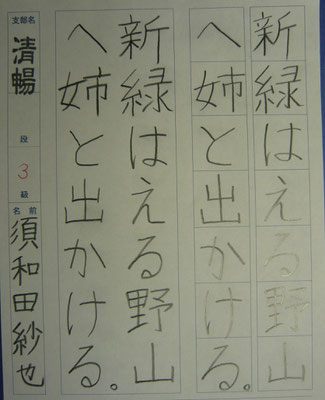 新緑はえる野山
へ姉と出かける。
新緑はえる野山
へ姉と出かける。
支部名
清暢
段
3
級
名前
須和田紗也